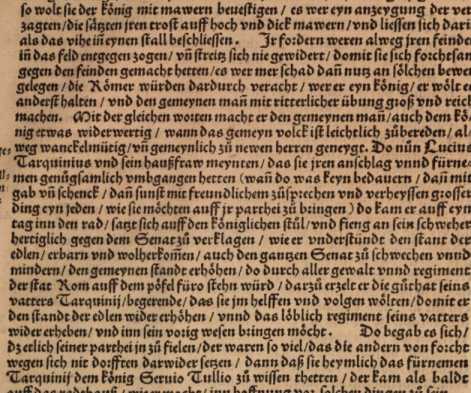 so wolt sie der künig mit mawern beuestigen / es wer eyn anzeygung der ver
zagten / die sätzten jren trost auff hoch vnd dick mawern / vnd liessen sich dar
als das vihe in eynen stall beschliessen. Jr fordern weren alweg jren feinde
in das feld entgegen zogen / vñ streits sich nie gewidert / domit sie sich forchtsam
gegen den feinden gemacht hetten / es wer mer schad dañ nutz an sölchen bewe
gelegen / die Römer würden dardurch veracht / wer er eyn künig / er wölt es
anderst halten / vnd den gemeynen mañ mit ritterlicher übung groß vnd reich
machen. Mit der gleichen worten macht er den gemeynen man / auch dem kü
nig etwas widerwertig / wann das gemeyn volck ist leichtlich zůbereden / al
weg wanckelmütig / vñ gemeynlich zů newen herren geneygt. Do nůn Lucius
Tarquinius vnd sein haußfraw meynten / das sie jren anschlag vnnd fürne
men genůgsamlich vmbgangen hetten (wañ do was keyn bedauern / dañ mit
gab vñ schenck / dañ sunst mit freundlichem zůsprechen vnd verheyssen grosser
ding eyn jeden / wie sie möchten auff jr parthei zů bringen) do kam er auff eyn
tag inn den rad / satzt sich auff den königlichen stůl / vnd fieng an sein schweher
hertiglich gegen dem Senat zů verklagen / wie er vnderstünde den stant der
edlen / erbarn vnd wolherkomen / auch den gantzen Senat zů schwechen vnnd
mindern / den gemeynen standt erhöhen / do durch aller gewalt vnnd regiment
der stat Rom auff dem pöfel füro stehn würd / darzů erzelt er die gůthat seins
vatters Tarquinij / begerende / das sie jm helffen vnd volgen wölten / domit er
den standt der edlen wider erhöhen / vnnd das löblich regiment seins vatters
wider erheben / vnd inn sein vorig wesen bringen möcht. Do begab es sich /
dz etlich seiner parthei jn zů fielen / der waren so viel / das die andern von forcht
wegen sich nit dorfften darwider setzen / dann daß sie heymlich das fürnemen
Tarquinij dem künig Seruio Tullio zů wissen thetten / der kam als baldt